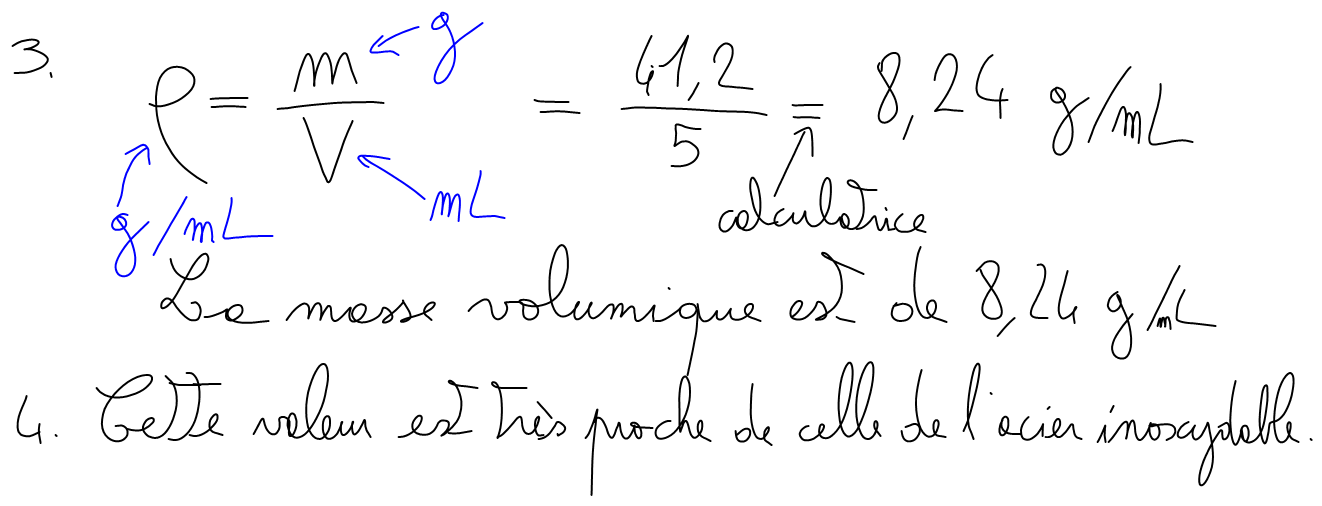 3. ρ = m/V = 41,2/5 = 8,24 g/mL
g
g/mL
mL
calculatrice
La masse volumique est de 8,24 g/mL
4. Cette valeur est très proche de celle de l'acier inoxydable.